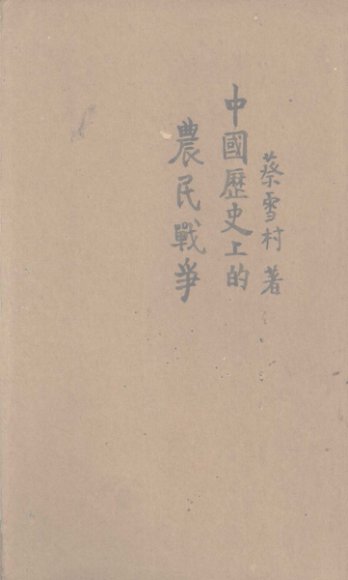 蔡雪村 著
中國歷史上的
農民戰爭